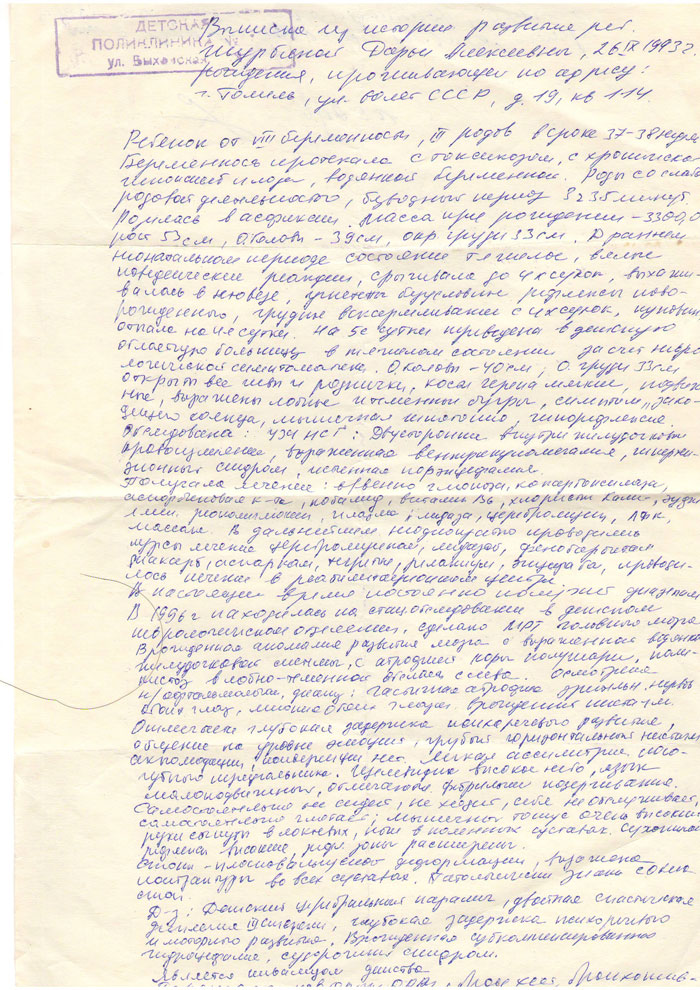 ДЕТСКАЯ
ПОЛИКЛИНИКА
ул. Быховская
Выписка из истории развития реб.
Дарьи Алексеевны, 26 IX 1993 г.
рождения, проживающей по адресу:
г. Гомель, ул. 60 лет СССР, д. 19, кв 114.
Ребенок от VIII беременности, III родов в сроке 37-38 недель
Беременность протекала с токсикозом, с хронической
гипоксией плода, водянкой беременной. Роды со слабой
родовой деятельностью, безводный период 3 ч 35 минут.
Родилась в асфиксии. Масса при рождении - 3300,0
рост 53 см, О.головы - 39 см, окр груди 33 см. В раннем
неонатальном периоде состояние тяжелое, вялые
поведенческие реакции, срыгивала до 4х суток, выхажи-
валась в кювезе, угнетены безусловн. рефлексы ново-
рожденного, грудное вскармливание с суток, пуповина
отпала на 4е сутки. На 5е сутки переведена в детскую
областную больницу в тяжелом состоянии за счет невро-
логической симптоматики. О.головы - 40 см, О. груди 33 см
открыты все швы и роднички, кости черепа мягкие, подвиж-
ные, выражены лобные и теменные бугры, симптом „захо-
дящего солнца, мышечная гипотония, гипорефлексия.
Обследована: УЗИ НСГ: Двустороннее внутрижелудочковое
кровоизлияние, выраженная вентрикуломегалия, гипертен-
зионный синдром, порэнцефалия.
Получала лечение: в/венно глюкоза, кокарбоксилаза,
аскорбиновая к-та, витамин В6, хлористый калий,
лидаза, церебролизин, ЛФК,
массаж. В дальнейшем неоднократно проводились
курсы лечения церебролизином, лидазой, фенобарбиталом
диакарб, аспаркам, проводи-
лось лечение в реабилитационном центре.
В настоящее время постоянно получает диакарб.
В 1996 г находилась на стац обследовании в детском
неврологическом отделении, сделано МРТ головного мозга
Врожденная аномалия развития мозга с выраженной водянкой
желудочковой системы, с атрофией коры полушарий,
в лобно-теменной области слева. Осмотрена
офтальмологом, диагноз: частичная атрофия зрительн. нервов
обоих глаз, миопия обоих глаз. Врожденный нистагм.
Отмечается глубокая задержка психоречевого развития,
общение на уровне эмоций, грубый горизонтальный нистагм
аккомодации, конвергенции нет. Легкая ассиметрия носо-
губного треугольника. высокое небо, язык
малоподвижный, отмечаются фибрилляр. подергивания.
Самостоятельно не сидит, не ходит, себя не обслуживает,
самостоятельно глотает; мышечный тонус очень высокий
руки согнуты в локтевых, ноги в коленных суставах. Сухожильные
рефлексы высокие, рефл. зоны расширены.
Стопы - плосковальгусная деформация, выражены
контрактуры во всех суставах. Патологические знаки с обеих
стоп.
Д-з: Детский церебральный паралич, двойная спастическая
гемиплегия III степени, глубокая задержка психоречевого
и моторного развития. Врожденная субкомпенсированная
гидроцефалия, судорожный синдром.
Является инвалидом детства